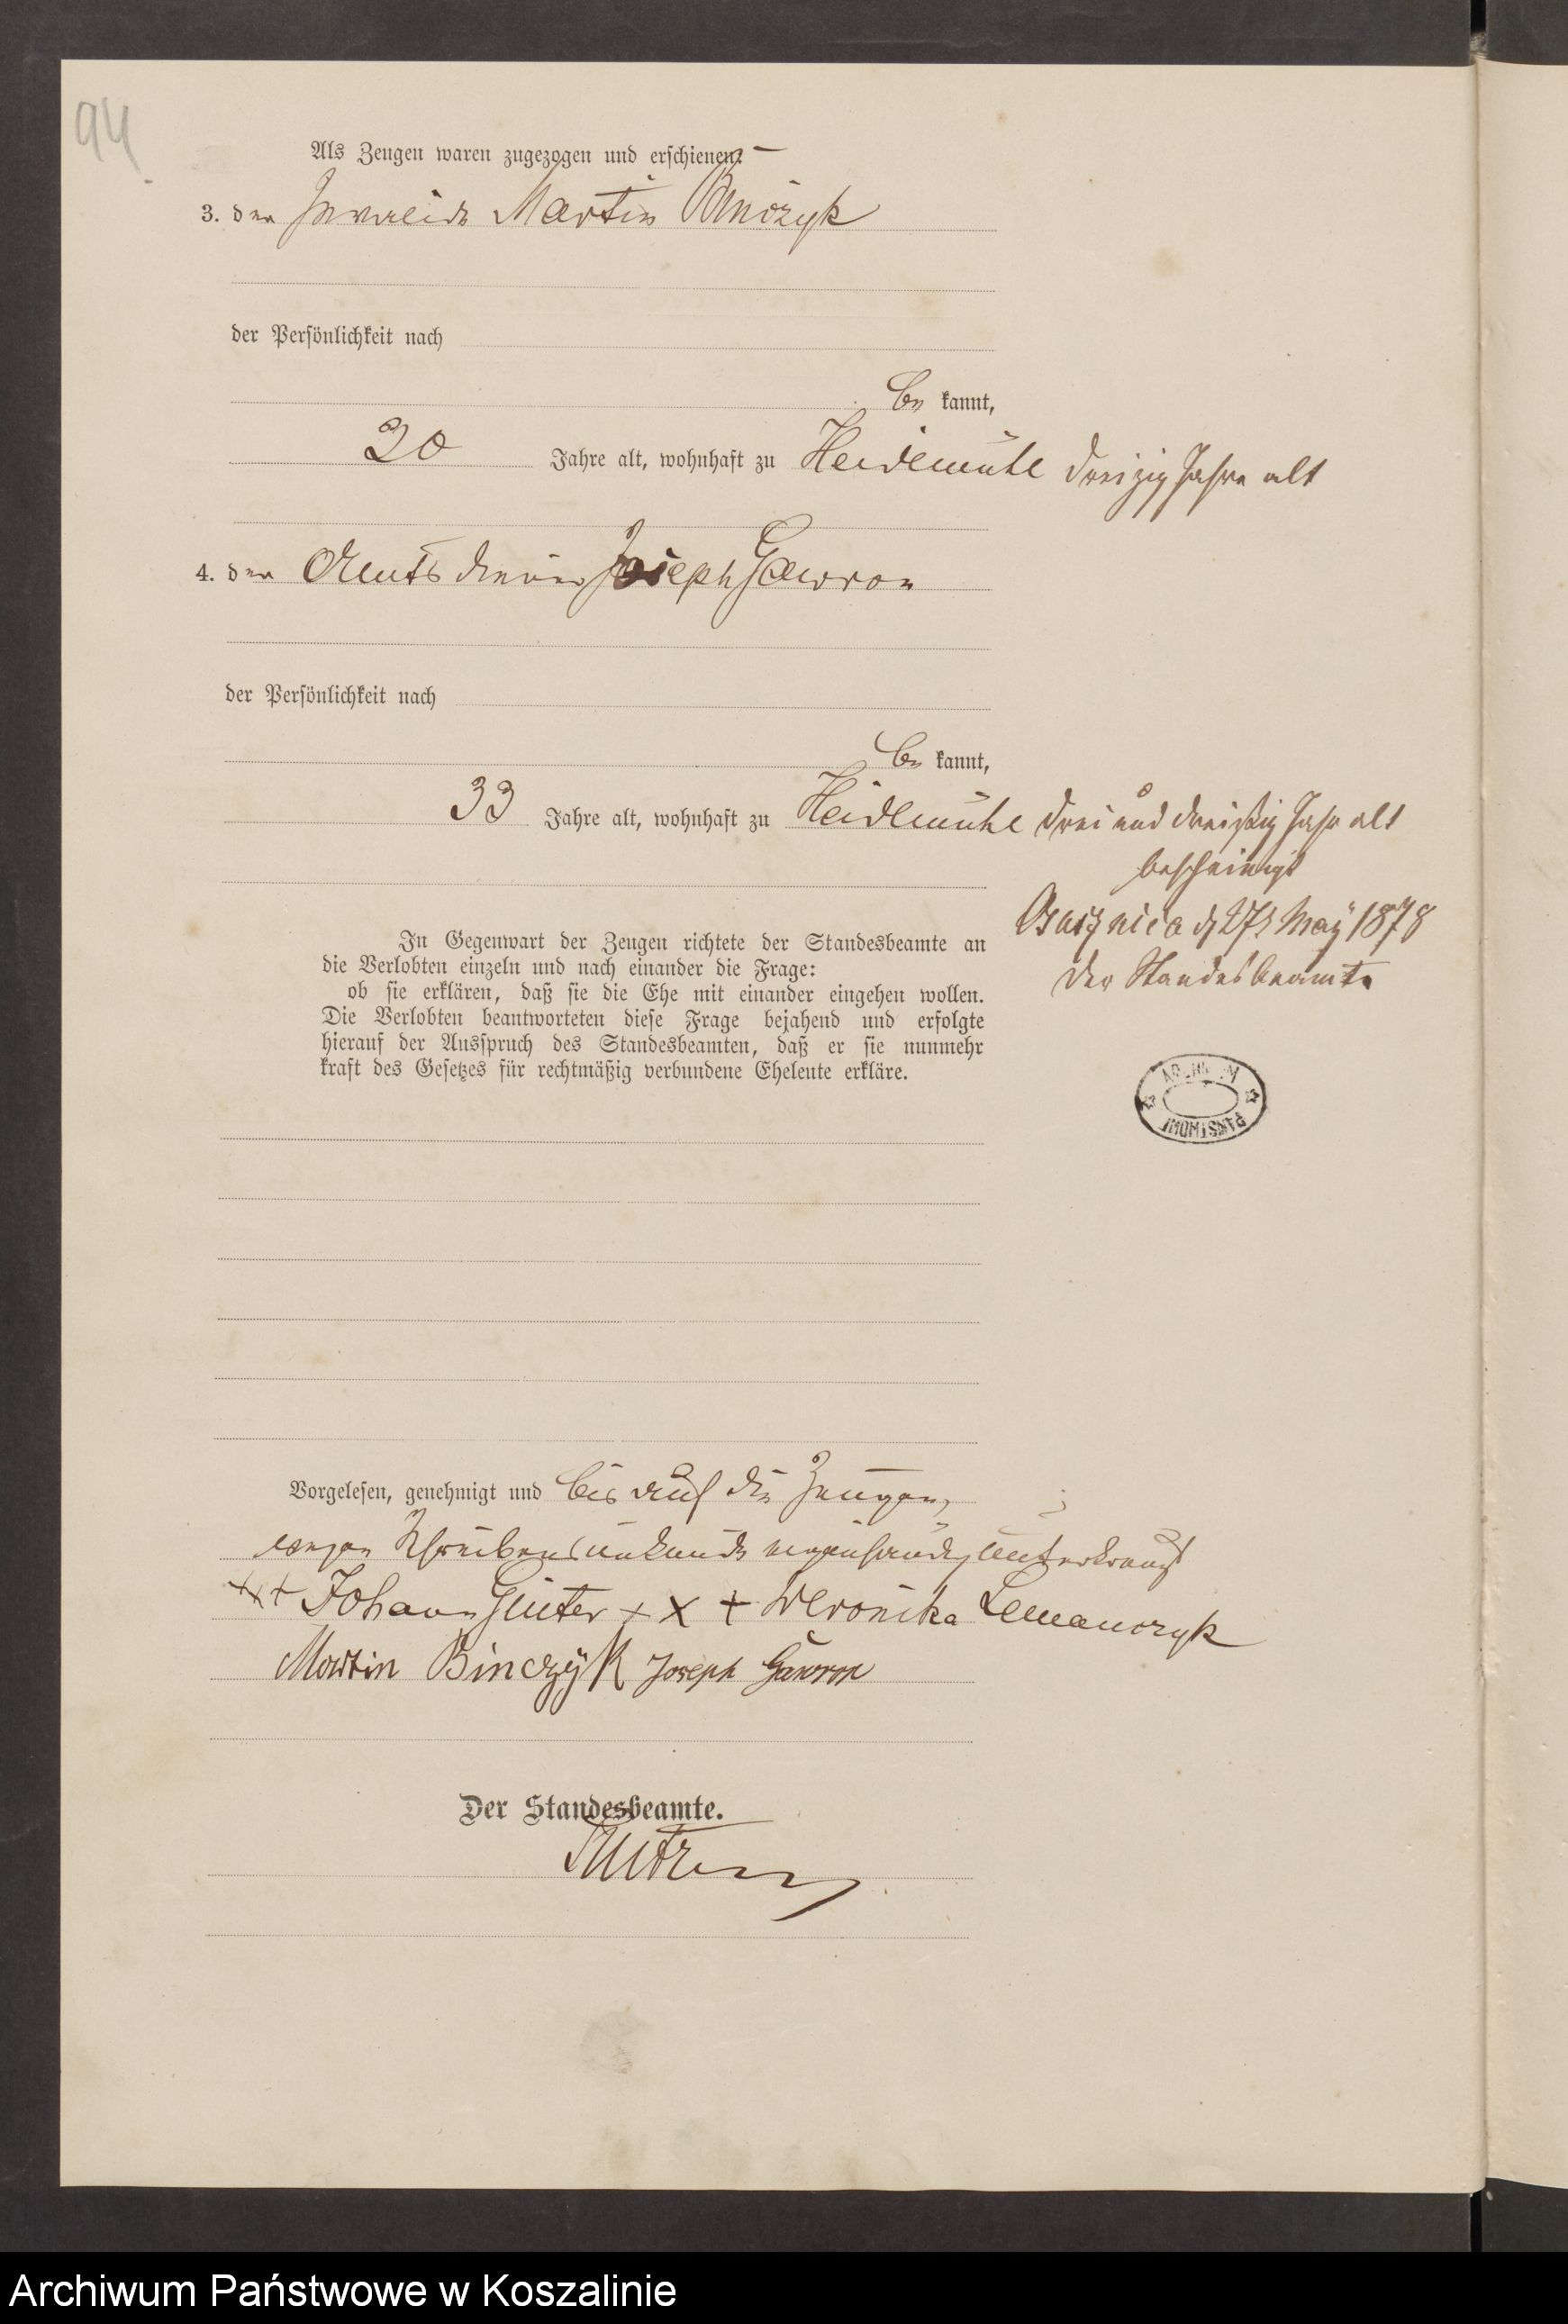 94
Als Zeugen waren zugezogen und erschienen:
3. der Invalide Martin Binczyk
der Persönlichkeit nach
be kannt,
30 Jahre alt, wohnhaft zu Heidemühl dreizig Jahre alt
4. der Amtsdiener Joseph Gawron
der Persönlichkeit nach
be kannt,
33 Jahre alt, wohnhaft zu Heidemühl drei und dreißig Jahr alt
bescheinigt
27t May 1878
Der Standesbeamte
In Gegenwart der Zeugen richtete der Standesbeamte an
die Verlobten einzeln und nach einander die Frage:
ob sie erklären, daß sie die Ehe mit einander eingehen wollen.
Die Verlobten beantworteten diese Frage bejahend und erfolgte
hierauf der Ausspruch des Standesbeamten, daß er sie nunmehr
kraft des Gesetzes für rechtmäßig verbundene Eheleute erkläre.
ARCHIWUM
PAŃSTWOWE
Vorgelesen, genehmigt und bis auf die Zeugen,
wegen Schreibensunkunde eigenhändig unterkreuzt
+++ Johann Ginter + x + Weronika Lemanczyk
Martin Binczÿk Joseph Gawron
Der Standesbeamte.
Archiwum Państwowe w Koszalinie